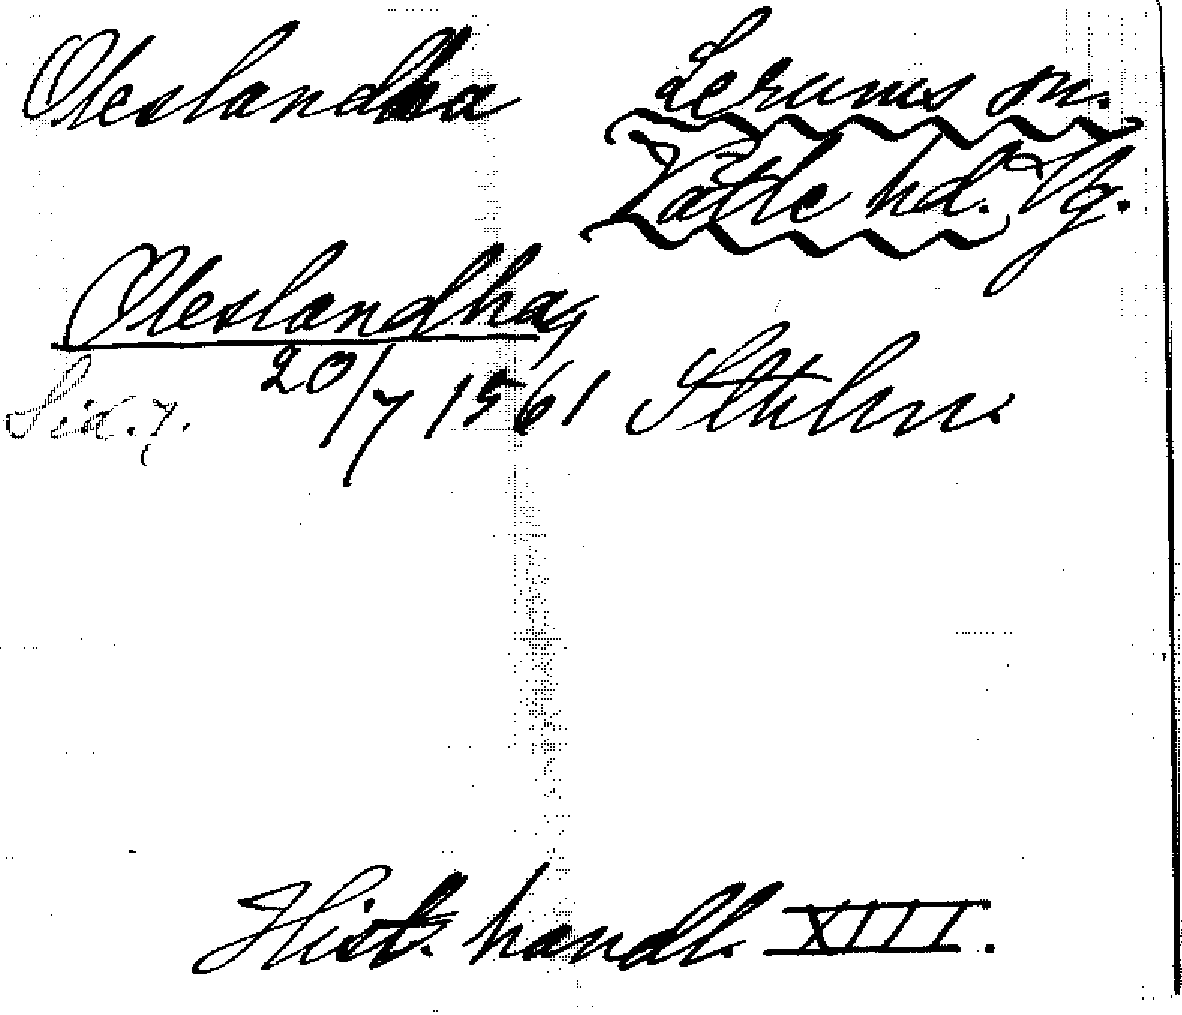 Oleslandha Lerums sn.
Vättle hd. Vg.
Oleslandhag
20/7 1561 Sthlm.
Hist. handl. XIII.